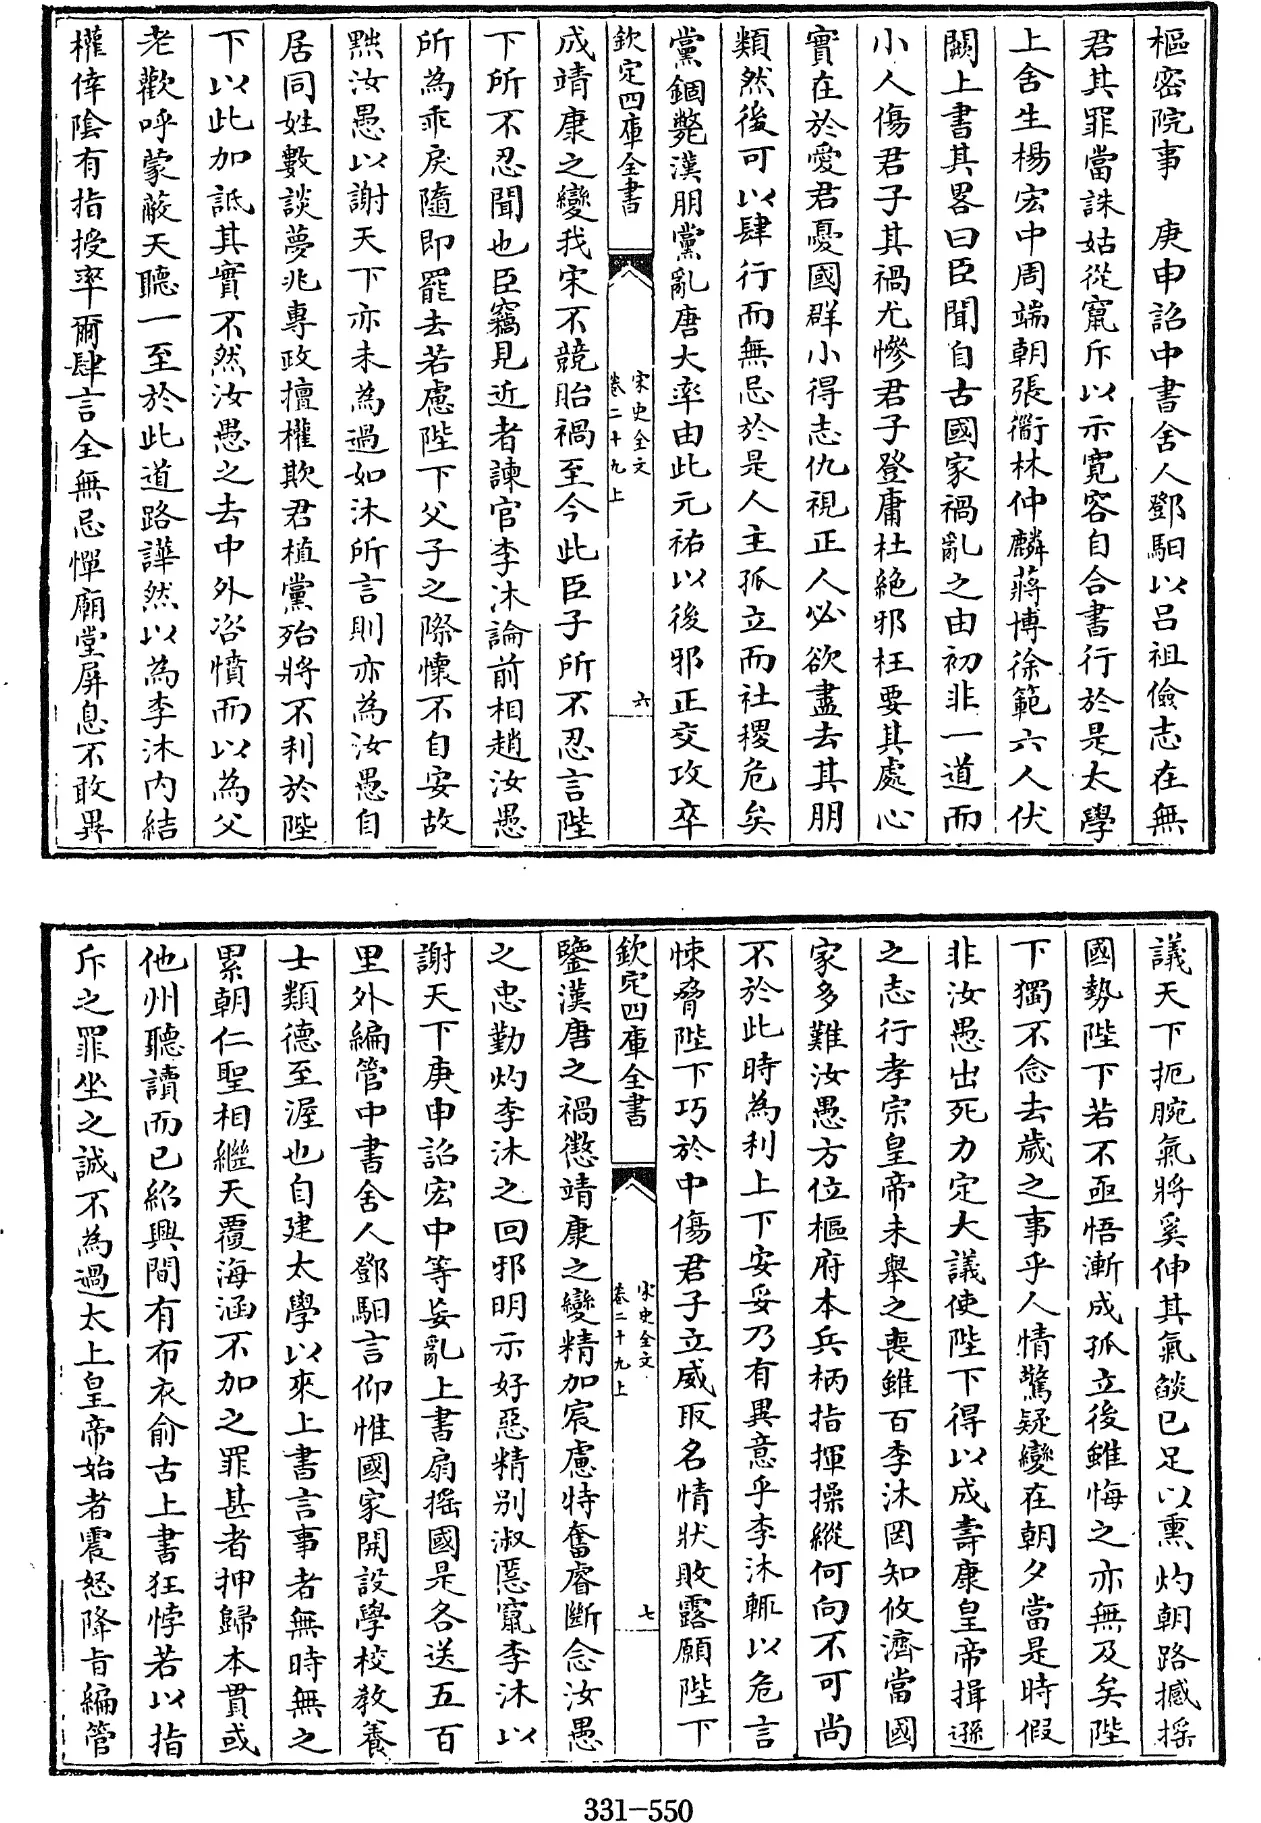 樞密院事　庚申詔中書舍人鄧馹以呂祖儉志在無
君其罪當誅姑從竄斥以示寬容自合書行於是太學
上舍生楊宏中周端朝張衟林仲麟蔣博徐範六人伏
闕上書其畧曰臣聞自古國家禍亂之由初非一道而
小人傷君子其禍尤慘君子登庸杜絶邪枉要其處心
實在於愛君憂國群小得志仇視正人必欲盡去其朋
類然後可以肆行而無忌於是人主孤立而社稷危矣
黨錮斃漢朋黨亂唐大率由此元祐以後邪正交攻卒
欽定四庫全書
宋史全文
卷二十九上
六
成靖康之變我宋不競胎禍至今此臣子所不忍言陛
下所不忍聞也臣竊見近者諫官李沐論前相趙汝愚
所為乖戾隨即罷去若慮陛下父子之際懷不自安故
黜汝愚以謝天下亦未為過如沐所言則亦為汝愚自
居同姓數談夢兆專政擅權欺君植黨殆將不利於陛
下以此加詆其實不然汝愚之去中外咨憤而以為父
老歡呼蒙蔽天聽一至於此道路譁然以為李沐内結
權倖陰有指授率爾肆言全無忌憚廟堂屏息不敢異
議天下扼腕氣將奚伸其氣燄已足以熏灼朝路撼搖
國勢陛下若不亟悟漸成孤立後雖悔之亦無及矣陛
下獨不念去歲之事乎人情驚疑變在朝夕當是時假
非汝愚出死力定大議使陛下得以成壽康皇帝揖遜
之志行孝宗皇帝未舉之喪雖百李沐罔知攸濟當國
家多難汝愚方位樞府本兵柄指揮操縱何向不可尚
不於此時為利上下安妥乃有異意乎李沐輒以危言
悚脅陛下巧於中傷君子立威取名情狀敗露願陛下
欽定四庫全書
宋史全文
卷二十九上
七
鑒漢唐之禍懲靖康之變精加宸慮特奮睿斷念汝愚
之忠勤灼李沐之回邪明示好惡精别淑慝竄李沐以
謝天下庚申詔宏中等妄亂上書扇搖國是各送五百
里外編管中書舍人鄧馹言仰惟國家開設學校教養
士類德至渥也自建太學以來上書言事者無時無之
累朝仁聖相繼天覆海涵不加之罪甚者押歸本貫或
他州聽讀而已紹興間有布衣俞古上書狂悖若以指
斥之罪坐之誠不為過太上皇帝始者震怒降旨編管
331-550